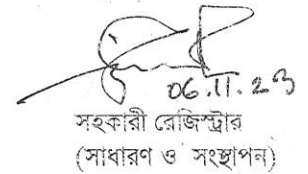 06.11.23
সহকারী রেজিস্ট্রার
(সাধারণ ও সংস্থাপন)